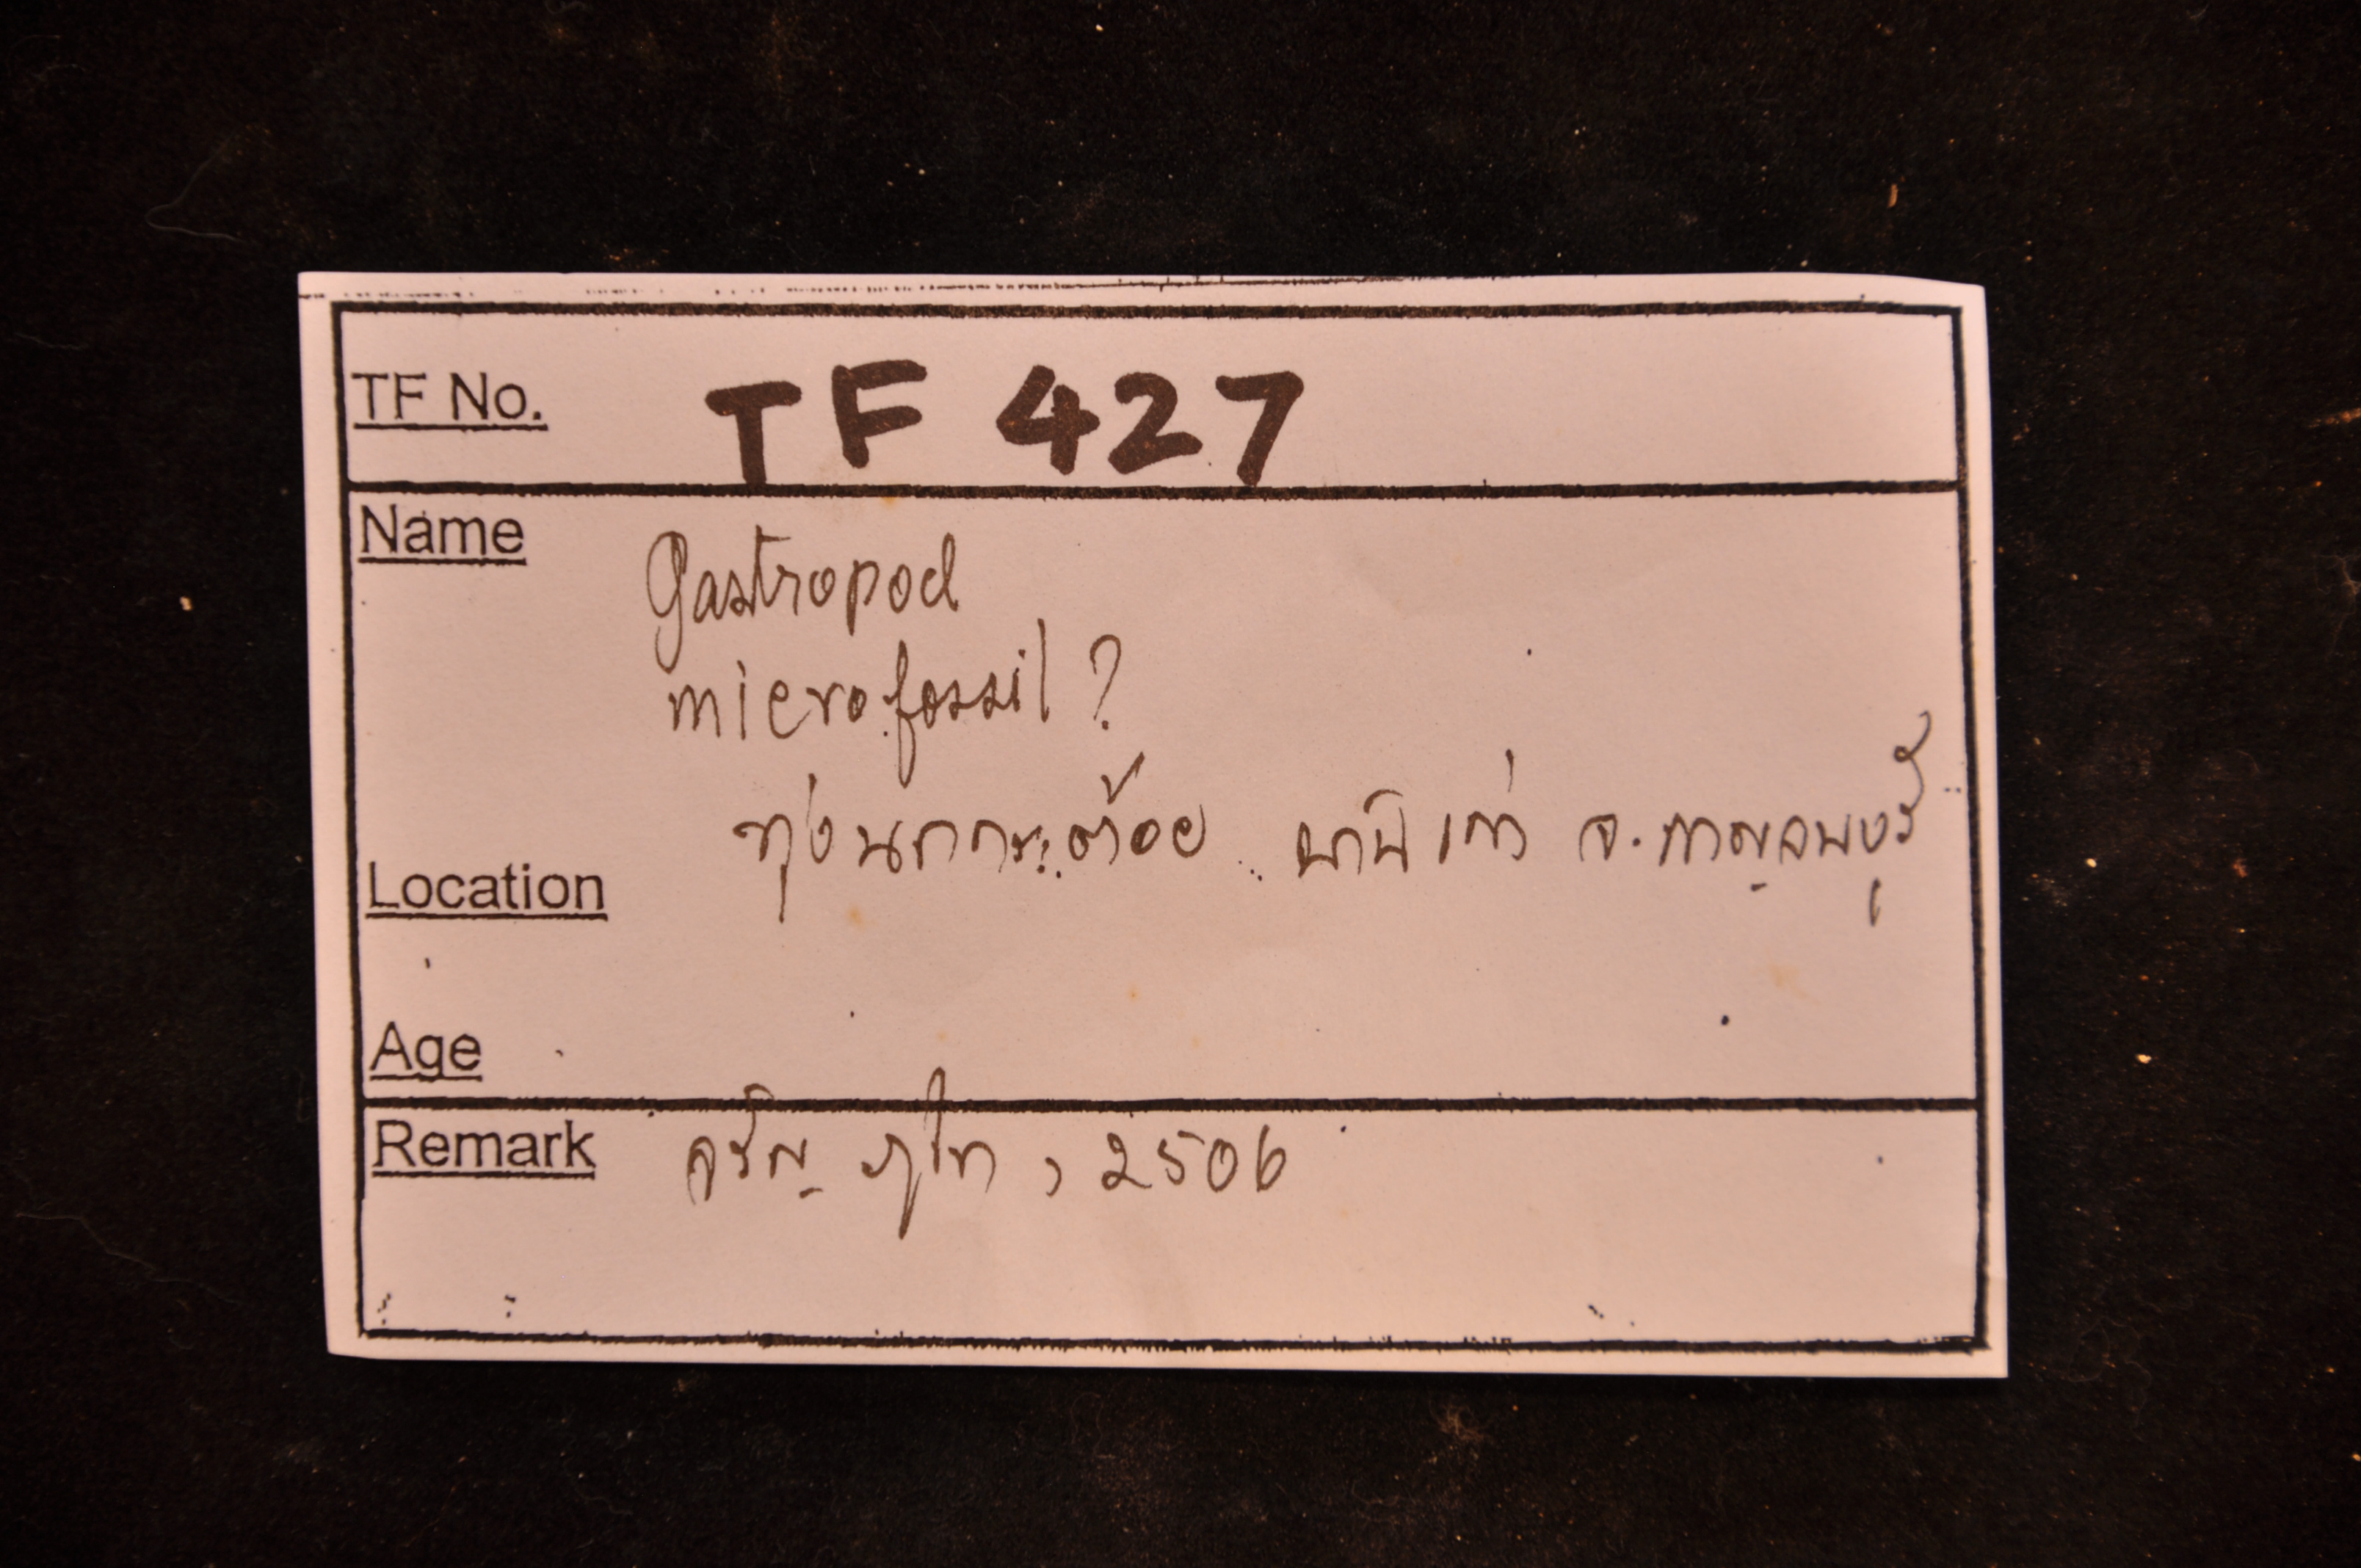 TF No. TF 427
Name Gastropod
microfossil?
ทุ่งนกกระต้อย นานิเก่า จ.กาญจนบุรี
Location
Age
Remark จรัญ ภูไท, 2506